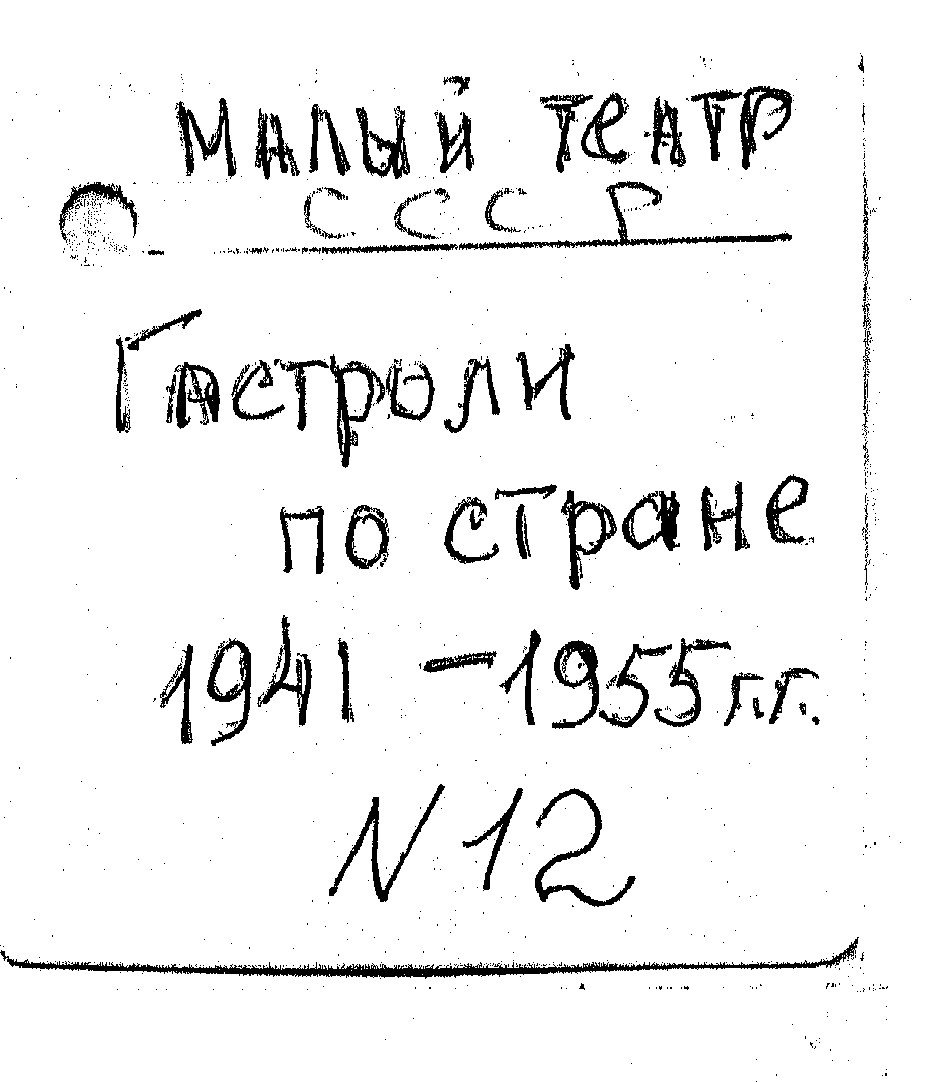 Малый театр
СССР
Гастроли
по стране
1941 - 1955 г.г.
N 12